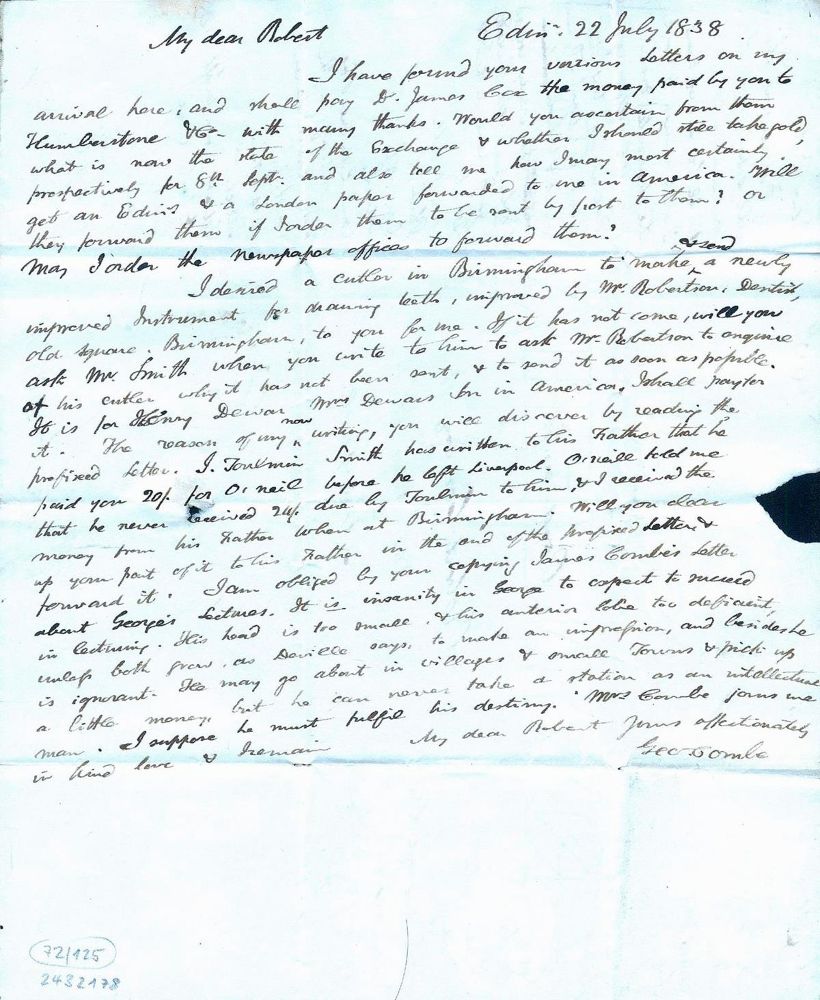 Edinr. 22 July 1838
My dear Robert
I have found your various Letters on my
arrival here, and shall pay Dr. James Cox the money paid by you to
Humberstone & Co with many thanks. Would you ascertain from them
what is now the state of the Exchange & whether I should still take gold,
prospectively for 8th Septr. and also tell me how I may most certainly
get an Edinr. & a London paper forwarded to me in America. Will
they forward them if I order them to be sent by post to them? or
may I order the newspaper offices to forward them?
& send
I desired a cutler in Birmingham to make a newly
improved Instrument for drawing teeth, improved by Mr. Robertson, Dentist,
old Square, Birmingham, to you for me. If it has not come, will you
ask Mr. Smith when you write to him to ask Mr. Robertson to enquire
of his cutler why it has not been sent, & to send it as soon as possible.
It is for Henry Dewar Mrs Dewars son in America. I shall pay for
it. The reason of my now writing, you will discover by reading the
prefixed Letter. J. Toulmin Smith has written to his Father that he
paid you 20/. for O'neil before he left Liverpool. O'neill told me
that he never received 24/. due by Toulmin to him, & I received the
money from his Father when at Birmingham. Will you clear
up your part of it to his Father in the end of the prefixed Letter &
forward it. I am obliged by your copying James Combe's Letter
about George's Lectures. It is insanity in George to expect to succeed
in lecturing. His head is too small, & his anterior lobe too deficient,
unless both grow, as Deville says, to make an impression, and besides he
is ignorant. He may go about in villages & small Towns & pick up
a little money, but he can never take a station as an intellectual
man. I suppose he must fulfil his destiny. Mrs Combe joins me
in kind love & I remain My dear Robert Yours affectionately
Geo Combe
72/125
2432178